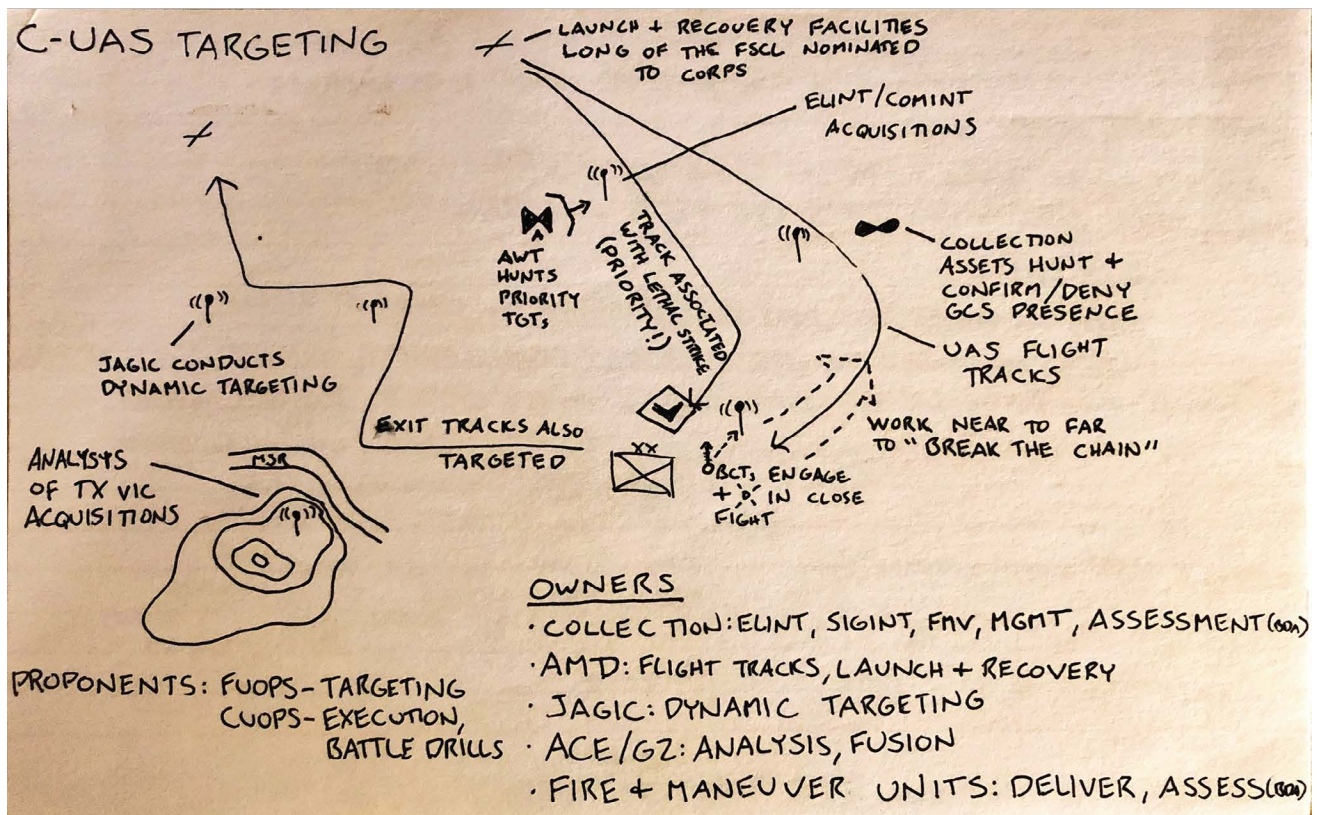 C-UAS TARGETING
LAUNCH + RECOVERY FACILITIES
LONG OF THE FSCL NOMINATED
TO CORPS
ELINT/COMINT
ACQUISITIONS
AWT
HUNTS
PRIORITY
TGTs
TRACK ASSOCIATED
WITH LETHAL STRIKE
(PRIORITY!)
COLLECTION
ASSETS HUNT +
CONFIRM/DENY
GCS PRESENCE
UAS FLIGHT
TRACKS
JAGIC CONDUCTS
DYNAMIC TARGETING
EXIT TRACKS ALSO
TARGETED
WORK NEAR TO FAR
TO "BREAK THE CHAIN"
XX
BCTs ENGAGE
+ IN CLOSE
FIGHT
ANALYSYS
OF TX VIC
ACQUISITIONS
MSR
OWNERS
· COLLECTION: ELINT, SIGINT, FMV, MGMT, ASSESSMENT (BDA)
· AMD: FLIGHT TRACKS, LAUNCH + RECOVERY
· JAGIC: DYNAMIC TARGETING
· ACE/G2: ANALYSIS, FUSION
· FIRE + MANEUVER UNITS: DELIVER, ASSESS (BDA)
PROPONENTS: FUOPS- TARGETING
CUOPS- EXECUTION,
BATTLE DRILLS